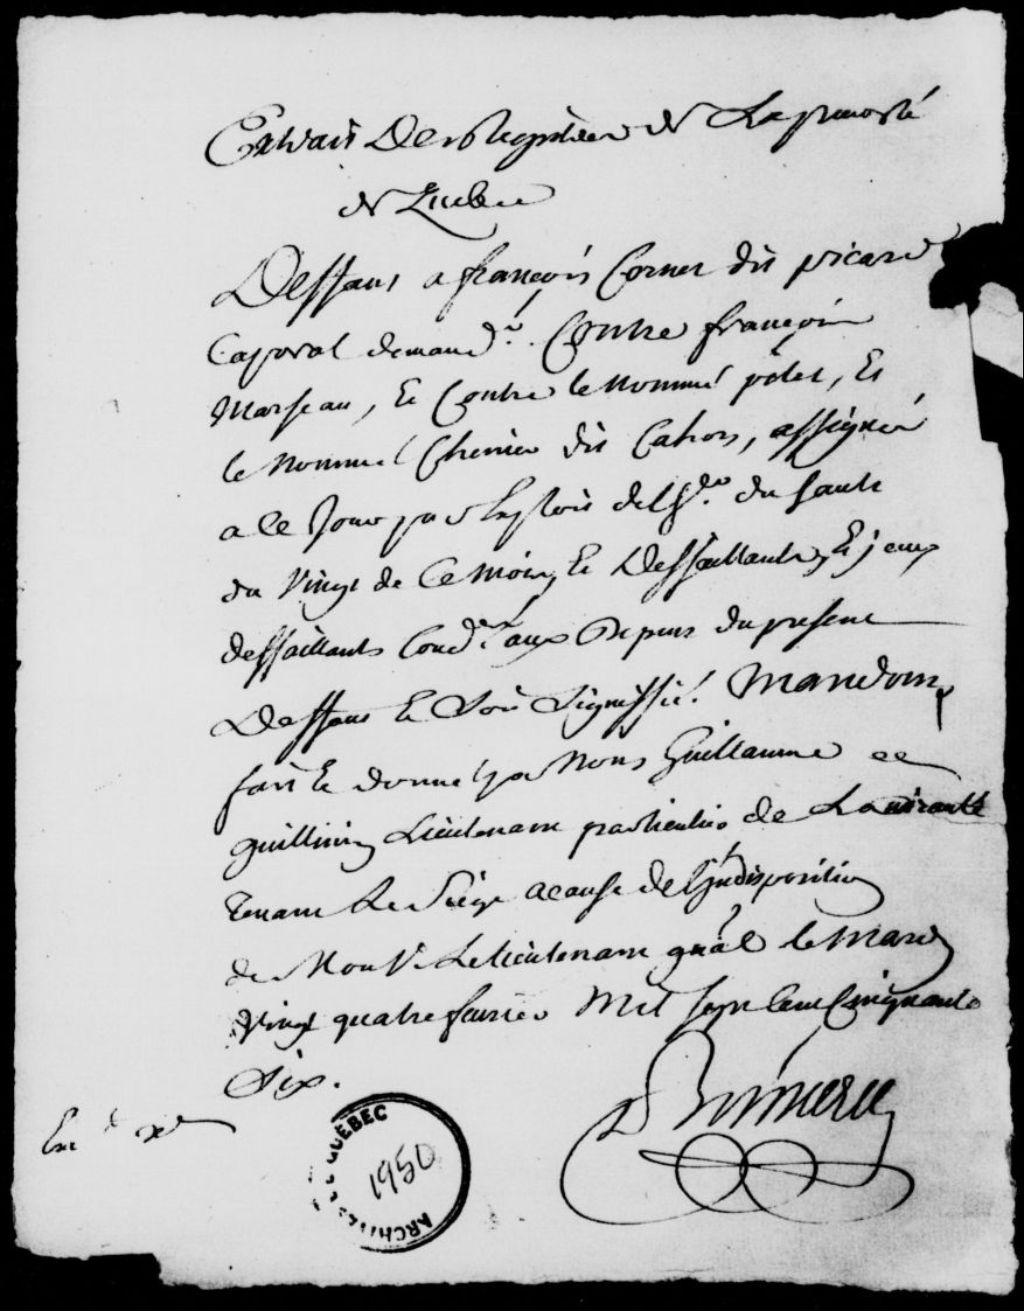 Extrait Des Registres de La prevosté
de Quebec
Deffaut a françois Corner dit picard
Caporal demand.r Contre françois
Marseau, Et Contre le Nommé  Et
le Nommé Chenier dit Cahors, assignés
a Ce Jour par Exploit de  du Sault
du Vingt de Ce Mois Et Deffaillants, Et iceux
deffaillants Cond.és aux Depens du present
Deffaut Et Soit Signiffié. Mandons
fait Et donné par Nous Guillaume
guillimin Lieutenant particulier de Lamirauté
tenant Le Siège acause de L'Indisposition
de Mons.r Le Lieutenant gñal le Mardy
Vingt quatre fevrier Mil Sept Cent Cinquante
Six.
ARCHIVES DE QUÉBEC
1950